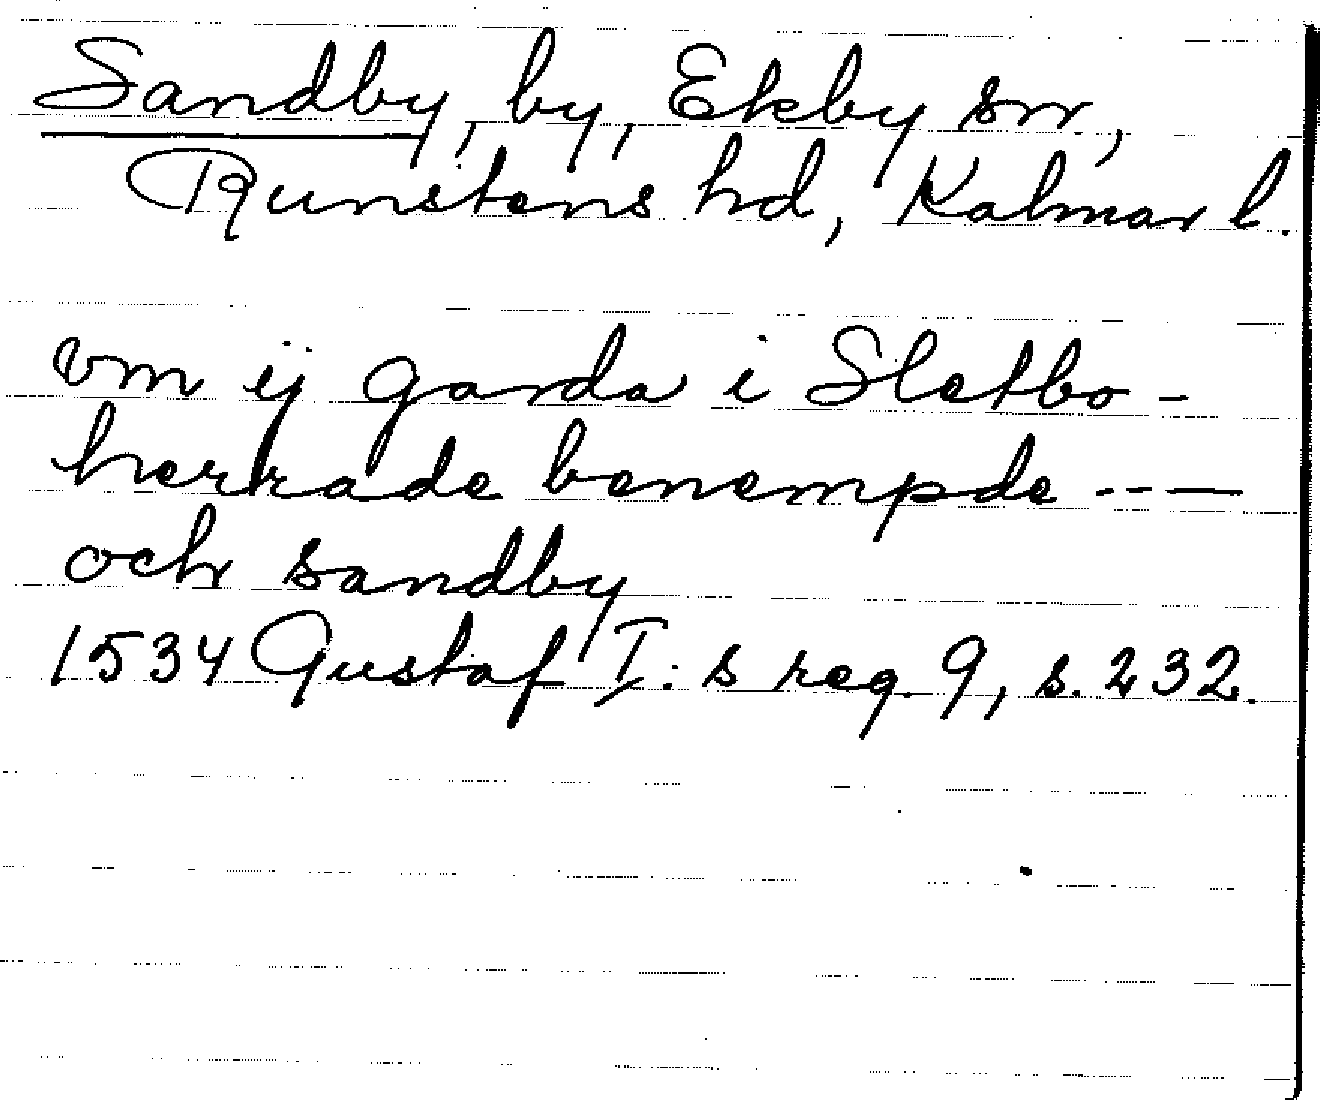 Sandby, by, Ekby sn,
Runstens hd, Kalmar l.
vm ij garda i Sletbo-
herrade benempde ---
och sandby
1534 Gustaf I:s reg. 9, s. 232.